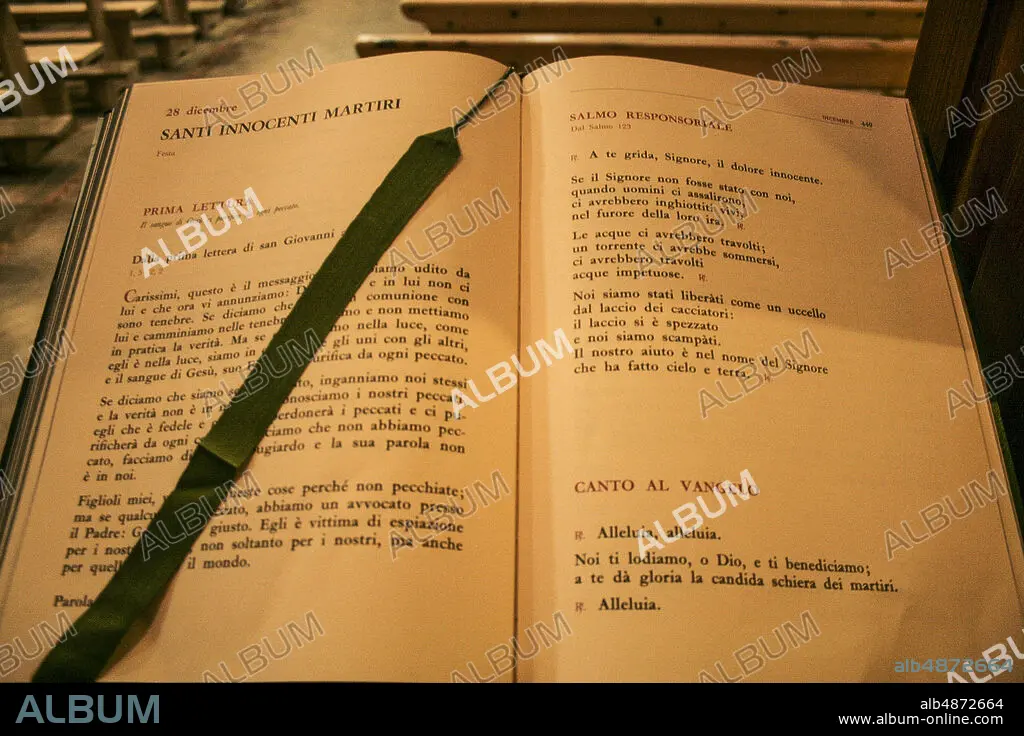 28 dicembre
SANTI INNOCENTI MARTIRI
Festa
PRIMA LETTURA
Il sangue di ogni peccato.
Dalla prima lettera di san Giovanni
1, 5
Carissimi, questo è il messaggio udito da
lui e che ora vi annunziamo: e in lui non ci
sono tenebre. Se diciamo che comunione con
lui e camminiamo nelle tenebre e non mettiamo
in pratica la verità. Ma se nella luce, come
egli è nella luce, siamo in gli uni con gli altri,
e il sangue di Gesù, suo da ogni peccato.
Se diciamo che siamo inganniamo noi stessi
e la verità non è in i nostri peccati,
egli che è fedele e i peccati e ci pu-
rificherà da ogni che non abbiamo pec-
cato, facciamo di e la sua parola non
è in noi.
Figlioli miei, cose perché non pecchiate;
ma se qualcuno abbiamo un avvocato presso
il Padre: giusto. Egli è vittima di espiazione
per i nostri non soltanto per i nostri, ma anche
per quelli il mondo.
Parola
DICEMBRE 449
SALMO RESPONSORIALE
Dal Salmo 123
℟. A te grida, Signore, il dolore innocente.
Se il Signore non fosse stato con noi,
quando uomini ci assalirono,
ci avrebbero inghiottiti vivi,
nel furore della loro ira. ℟.
Le acque ci avrebbero travolti;
un torrente ci avrebbe sommersi,
ci avrebbero travolti
acque impetuose. ℟.
Noi siamo stati liberàti come un uccello
dal laccio dei cacciatori:
il laccio si è spezzato
e noi siamo scampàti.
Il nostro aiuto è nel nome del Signore
che ha fatto cielo e terra. ℟.
CANTO AL VANGELO
℟. Alleluia, alleluia.
Noi ti lodiamo, o Dio, e ti benediciamo;
a te dà gloria la candida schiera dei martiri.
℟. Alleluia.
alb4872664
ALBUM
alb4872664
www.album-online.com